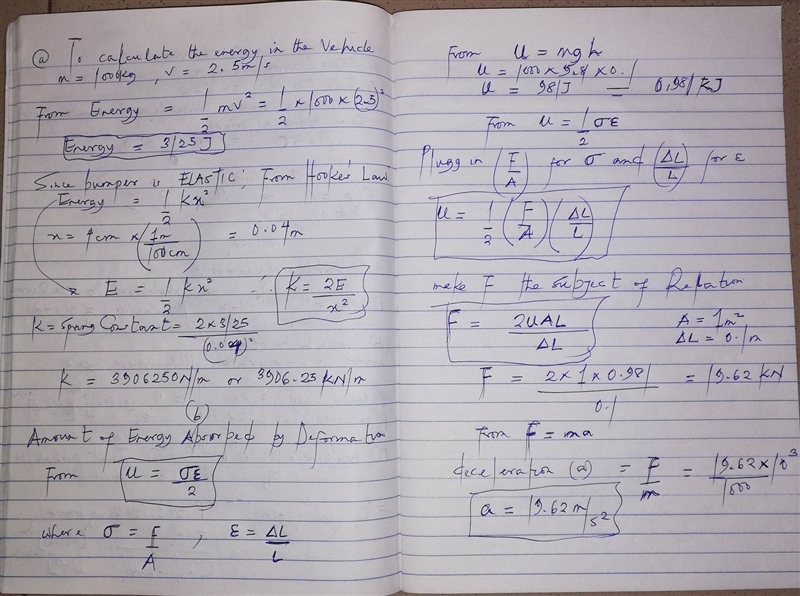 (a) To calculate the energy in the Vehicle
m = 1000kg, v = 2.5m/s
From Energy = 1/2 mv² = 1/2 × 1000 × (2.5)²
Energy = 3125J
Since bumper is ELASTIC; From Hooke's Law
Energy = 1/2 Kx²
x = 4cm × (1m/100cm) = 0.04m
E = 1/2 Kx² ∴ K = 2E/x²
K = Spring Constant = 2×3125/(0.04)²
K = 3906250N/m or 3906.25KN/m
(b)
Amount of Energy Absorbed by Deformation
From U = σε/2
where σ = F/A , ε = ΔL/L
From U = mgh
U = 1000 × 9.81 × 0.1
U = 981J = 0.981KJ
From U = 1/2 σε
Plugg in (F/A) for σ and (ΔL/L) for ε
U = 1/2 (F/A) (ΔL/L)
make F the subject of Relation
F = 2UAL/ΔL A = 1m²
ΔL = 0.1m
F = 2×1×0.981/0.1 = 19.62KN
From F = ma
deceleration (a) = F/m = 19.62×10³/1000
a = 19.62m/s²